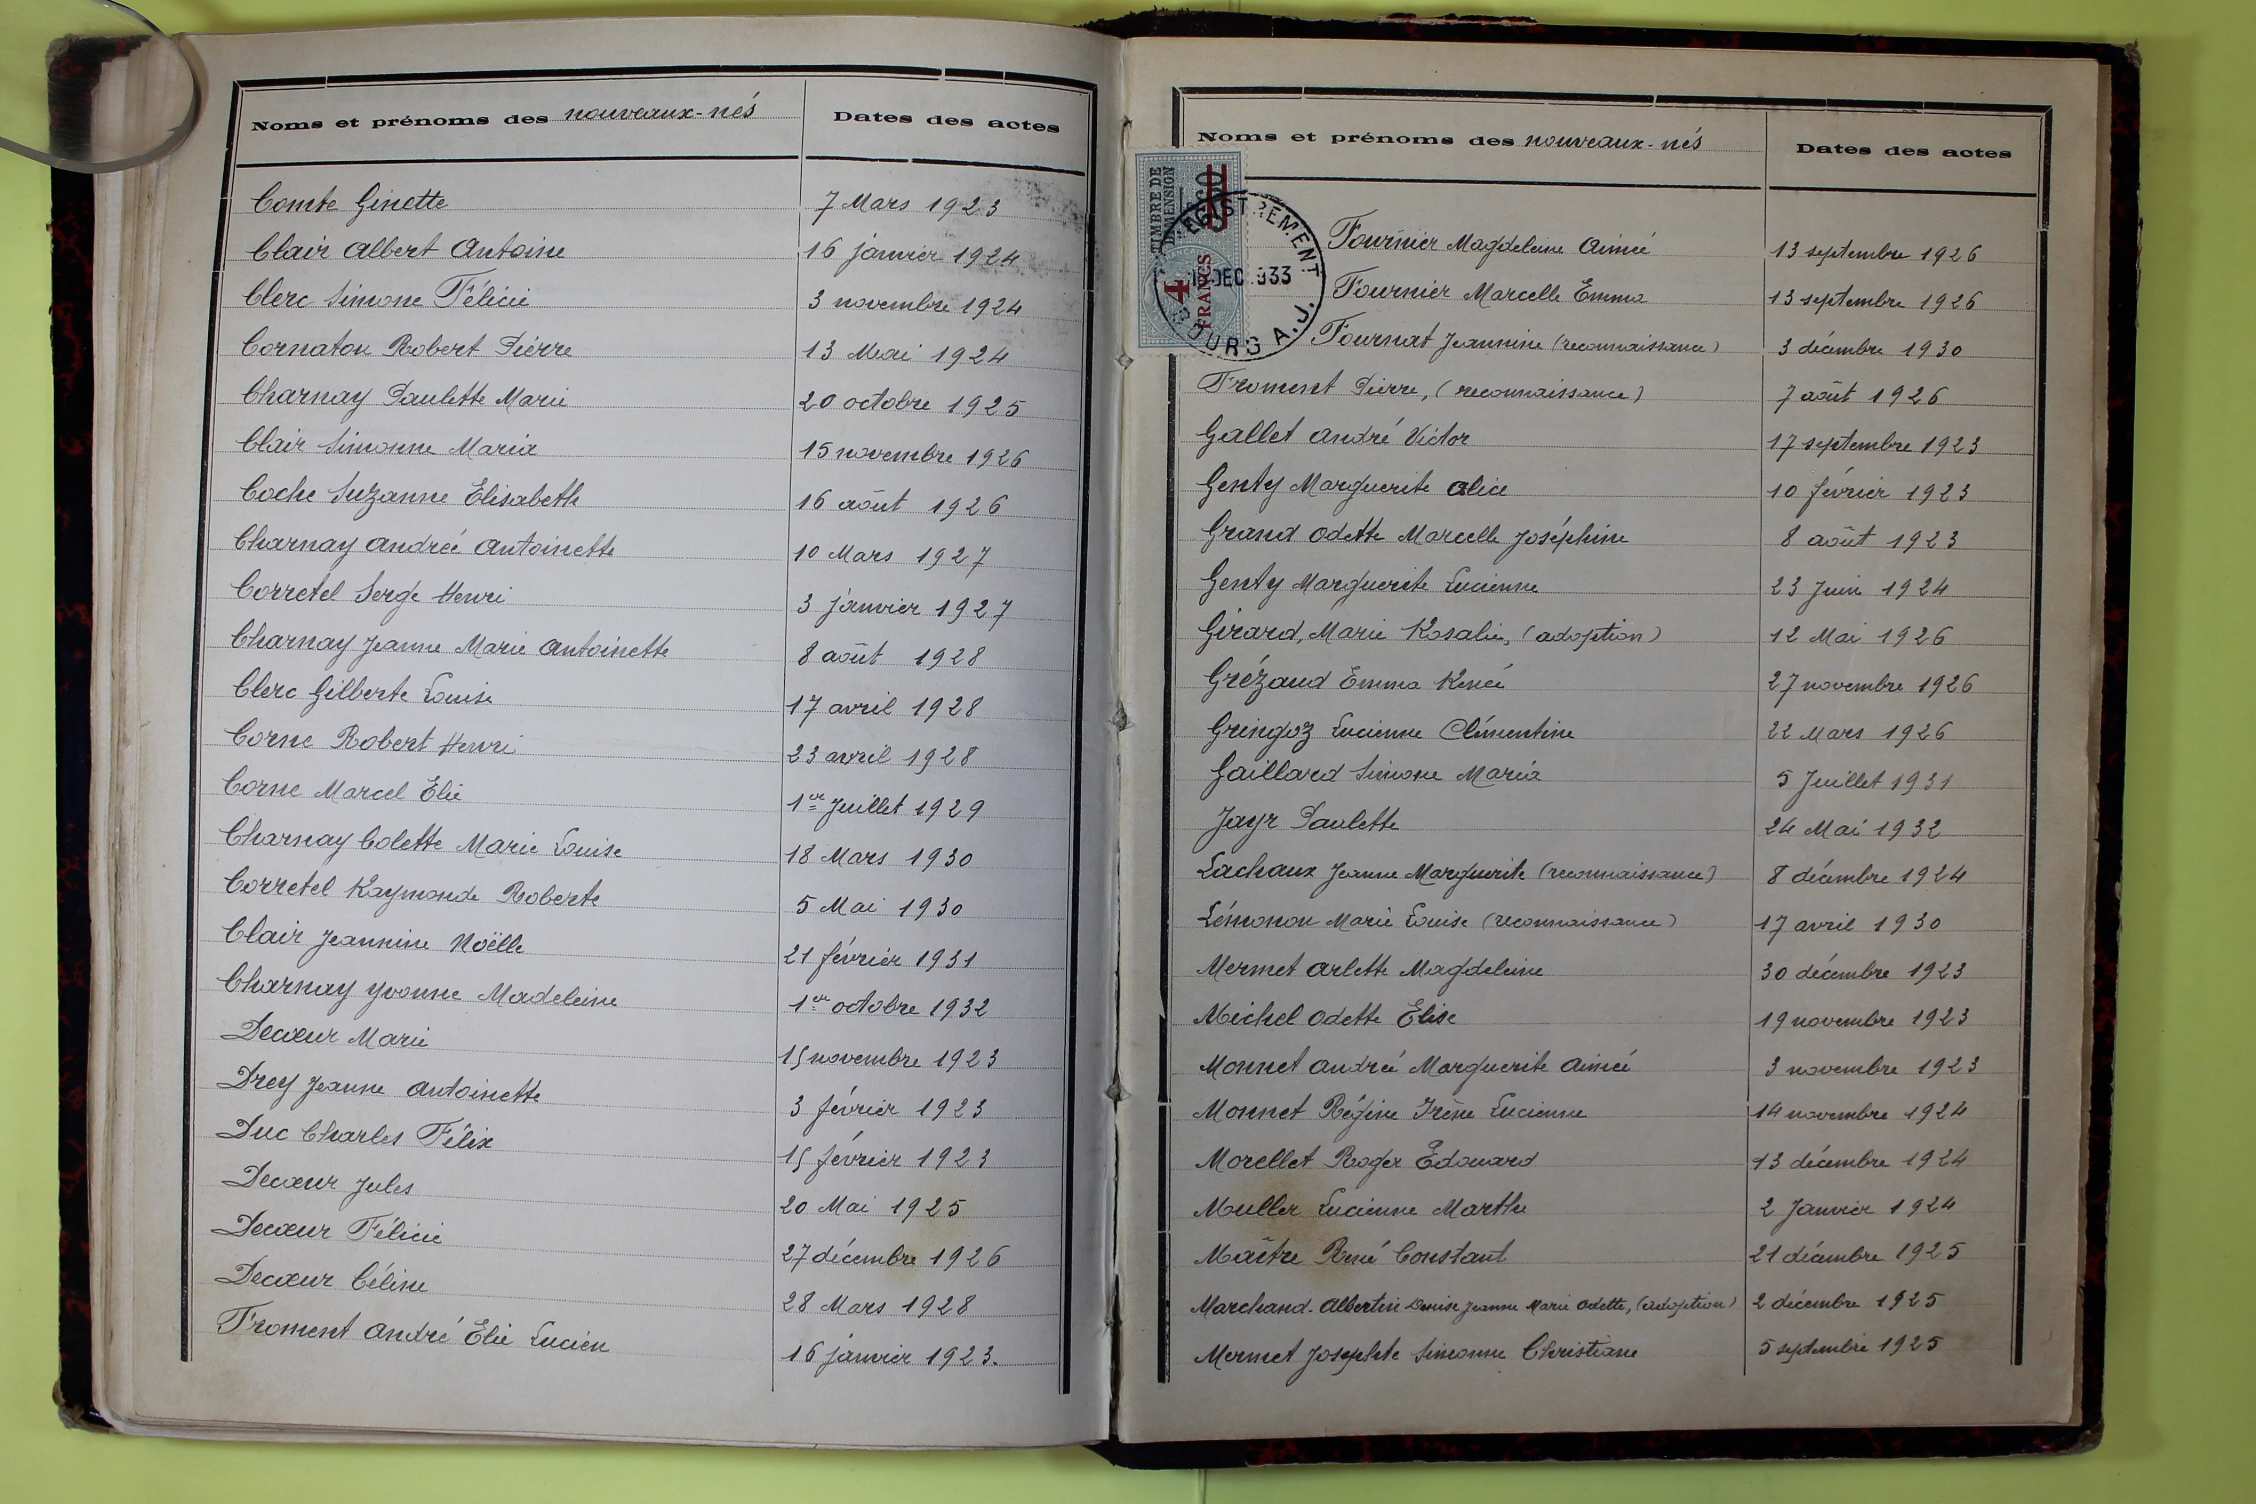 Noms et prénoms des nouveaux-nés Dates des actes
Comte Ginette 7 Mars 1923
Clair Albert Antoine 16 janvier 1924
Clerc Simone Félicie 3 novembre 1924
Cornaton Robert Pierre 13 Mai 1924
Charnay Paulette Marie 20 octobre 1925
Clair Simonne Maria 15 novembre 1926
Coche Suzanne Elisabeth 16 août 1926
Charnay Andrée Antoinette 10 Mars 1927
Corretel Serge Henri 3 janvier 1927
Charnay Jeanne Marie Antoinette 8 août 1928
Clerc Gilberte Louise 17 avril 1928
Corne Robert Henri 23 avril 1928
Corne Marcel Elie 1er Juillet 1929
Charnay Colette Marie Louise 18 Mars 1930
Corretel Raymonde Roberte 5 Mai 1930
Clair Jeannine Noëlle 21 février 1931
Charnay Yvonne Madeleine 1er octobre 1932
Decœur Marie 15 novembre 1923
Drey Jeanne Antoinette 3 février 1923
Duc Charles Félix 15 février 1923
Decœur Jules 20 Mai 1925
Decœur Félicie 27 décembre 1926
Decœur Céline 28 Mars 1928
Froment André Elie Lucien 16 janvier 1923.
Noms et prénoms des nouveaux-nés Dates des actes
TIMBRE DE
DIMENSION
4 FRANCS
ENREGISTREMENT
DEC 933
BOURG A.J.
Fournier Magdeleine Aimée 13 septembre 1926
Fournier Marcelle Emma 13 septembre 1926
Fournat Jeannine (reconnaissance) 3 décembre 1930
Froment Pierre, (reconnaissance) 7 août 1926
Gallet André Victor 17 septembre 1923
Genty Marguerite Alice 10 février 1923
Grand Odette Marcelle Joséphine 8 août 1923
Genty Marguerite Lucienne 23 Juin 1924
Girard, Marie Rosalie, (adoption) 12 Mai 1926
Grézaud Emma Renée 27 novembre 1926
Gringoz Lucienne Clémentine 22 Mars 1926
Gaillard Simone Maria 5 Juillet 1931
Jayr Paulette 24 Mai 1932
Lachaux Jeanne Marguerite (reconnaissance) 8 décembre 1924
Lémonon Marie Louise (reconnaissance) 17 avril 1930
Mermet Arlette Magdeleine 30 décembre 1923
Michel Odette Elise 19 novembre 1923
Monnet Andrée Marguerite Aimée 3 novembre 1923
Monnet Régine Irène Lucienne 14 novembre 1924
Morellet Roger Edouard 13 décembre 1924
Muller Lucienne Marthe 2 Janvier 1924
Maître René Constant 21 décembre 1925
Marchand-Albertin Denise Jeanne Marie Odette, (adoption) 2 décembre 1925
Mermet Josephte Simonne Christiane 5 septembre 1925